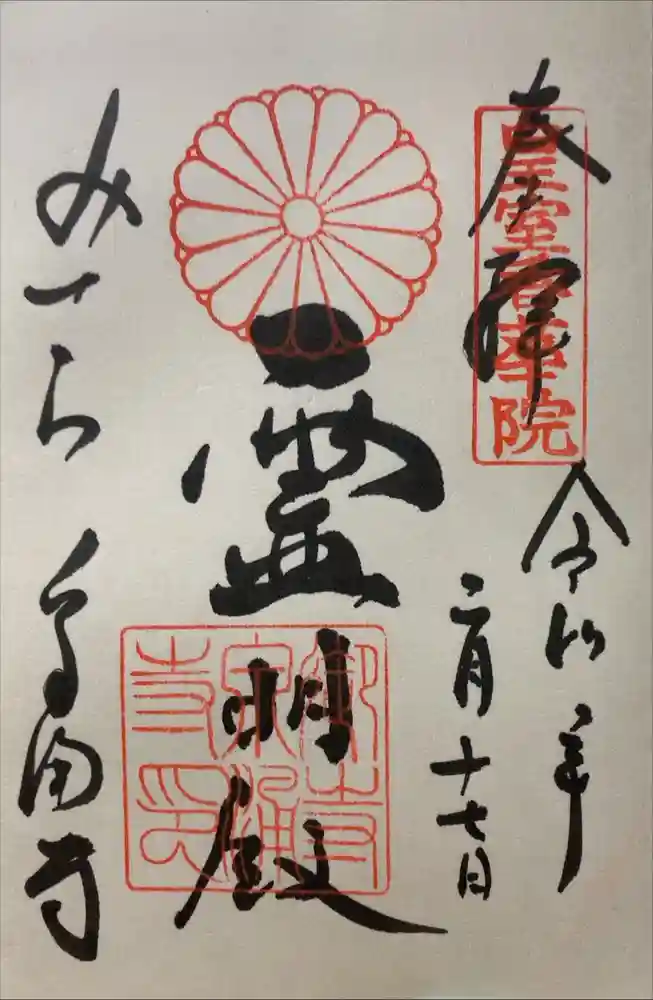 奉拝
皇室香華院
令和二年
二月十七日
霊明殿
御寺
泉涌
寺印
みてら 泉涌寺